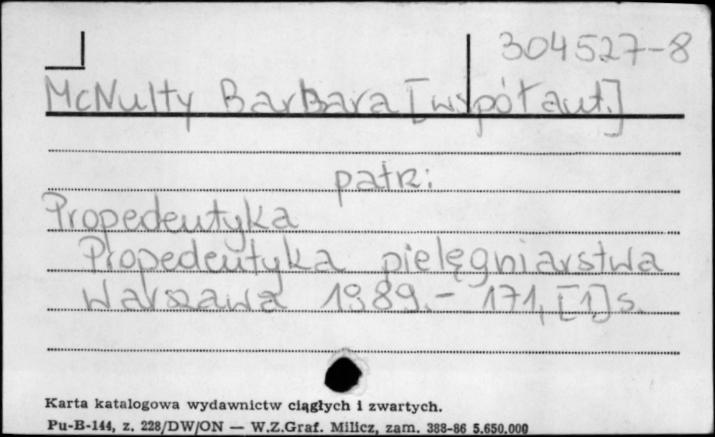 304527-8
McNulty Barbara [współaut.]
patrz:
Propedeutyka
Propedeutyka pielęgniarstwa
Warszawa 1989.- 171, [1] s.
Karta katalogowa wydawnictw ciągłych i zwartych.
Pu-B-144, z. 228/DW/ON — W.Z.Graf. Milicz, zam. 388-86 5.650.000